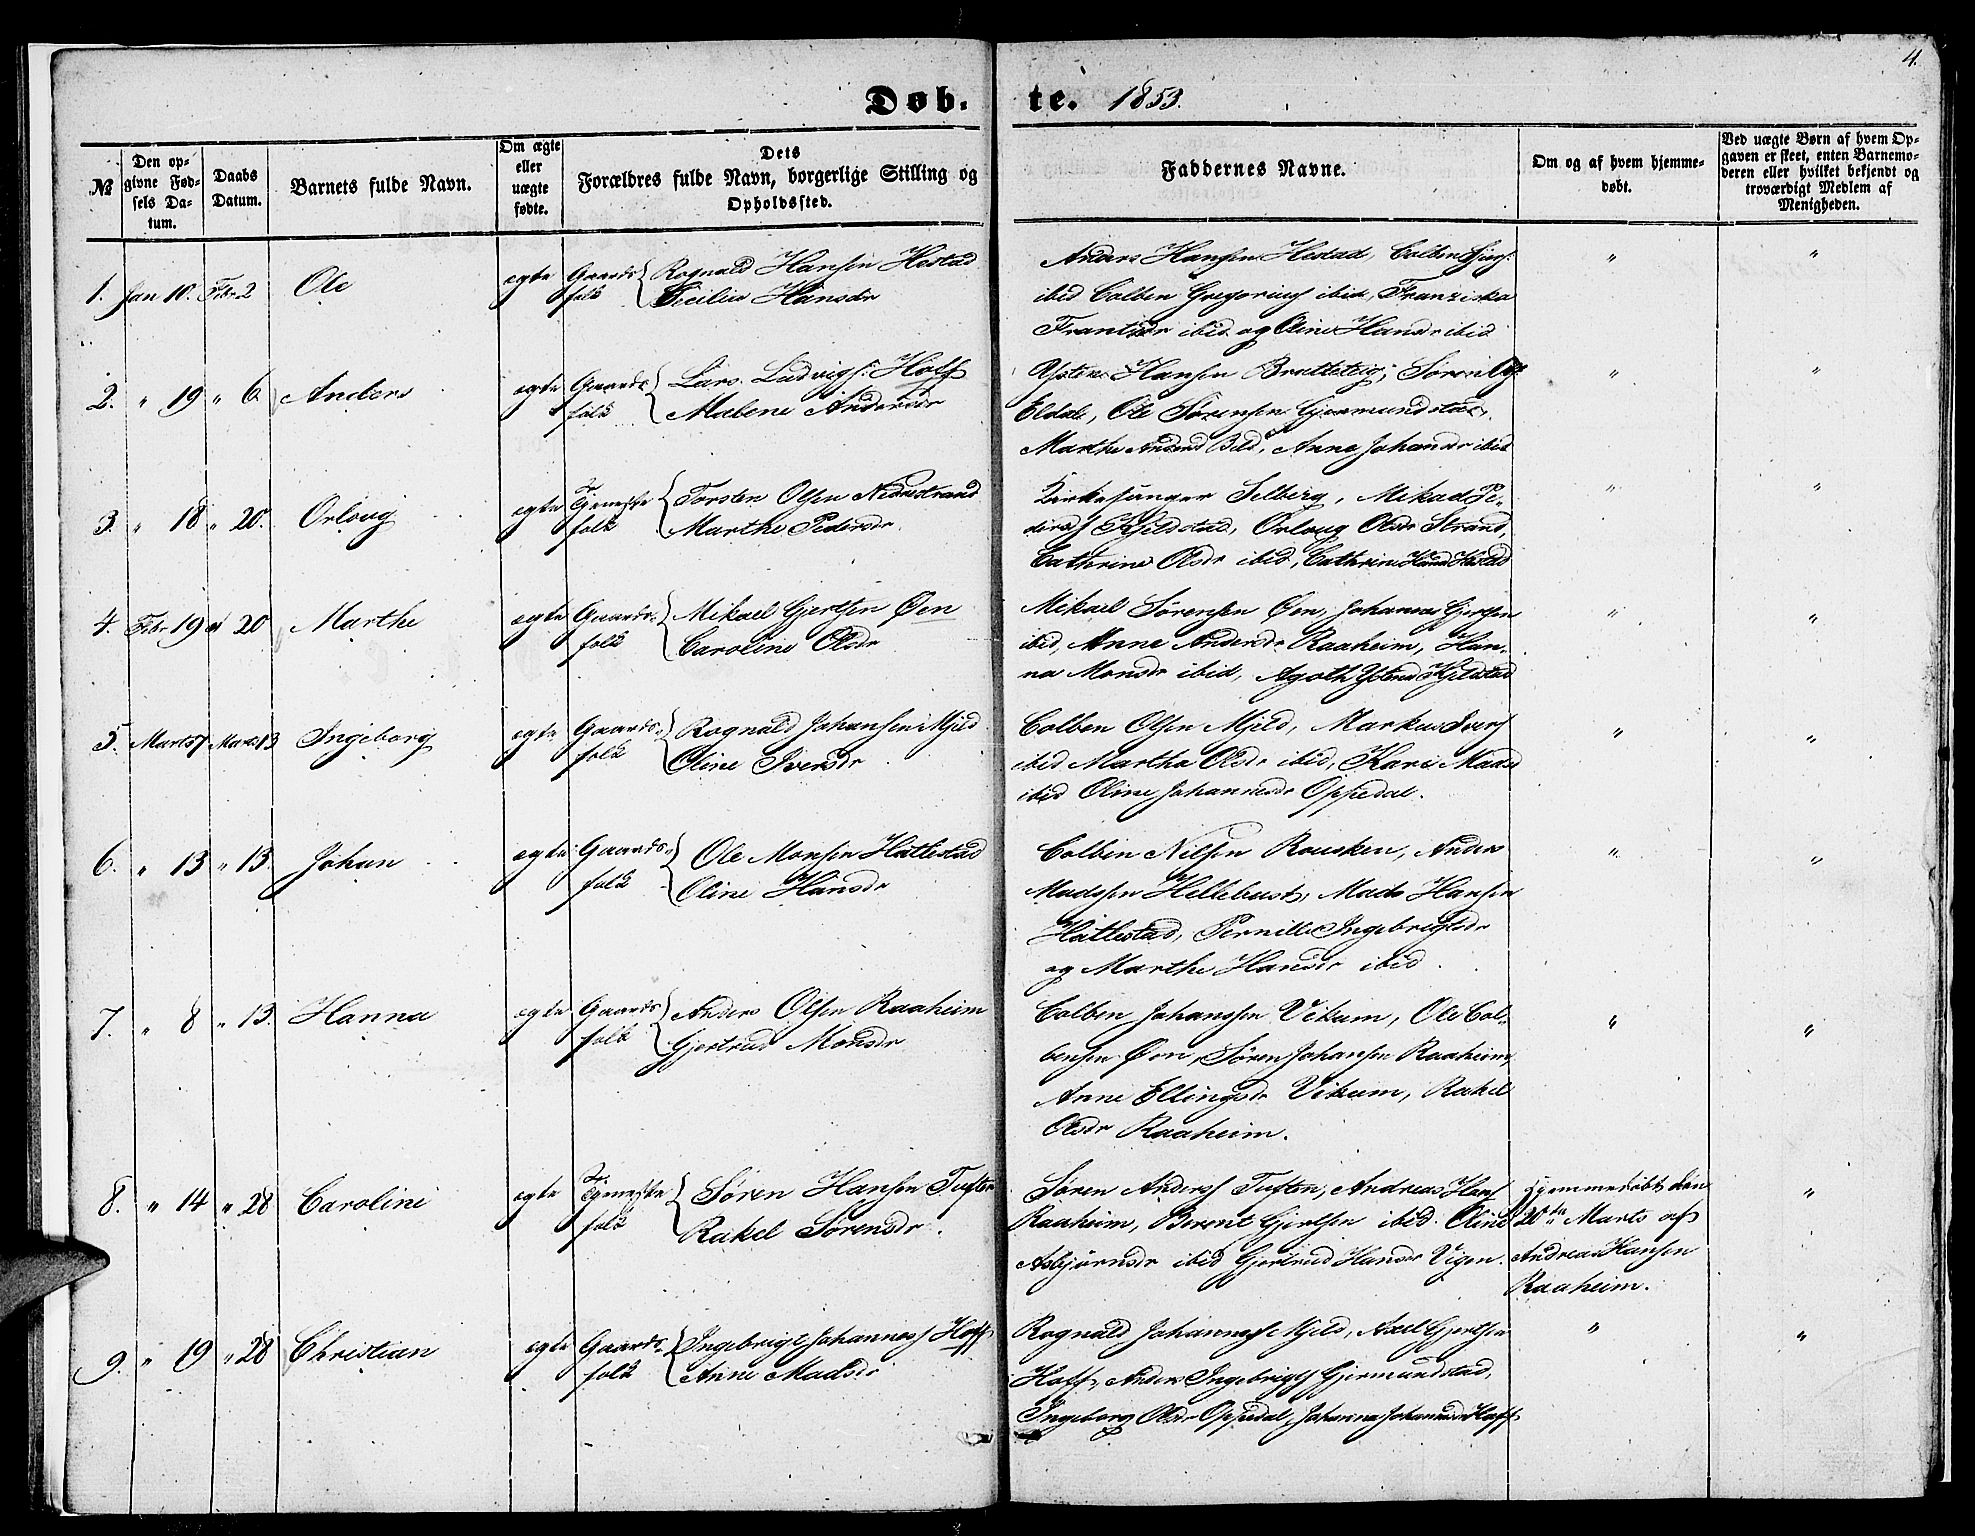 4.
Døb. te. 1853.
№
Den op-
givne Fød-
sels Da-
tum.
Daabs
Datum.
Barnets fulde Navn.
Om ægte
eller
uægte
fødte.
Dets
Forældres fulde Navn, borgerlige Stilling og
Opholdssted.
Faddernes Navne.
Om og af hvem hjemme-
døbt.
Ved uægte Børn af hvem Op-
gaven er skeet, enten Barnemo-
deren eller hvilket bekjendt og
troværdigt Medlem af
Menigheden.
1. Jan 10. Febr 2 Ole ægte Gaards folk { Rognald Hansen Hestad
Sicilie Hansdr
Anders Hansen Hestad, Colben
ibid Colben Gregoriuss ibid, Franziska
Frantsdr ibid og Oline Hansdr ibid
" "
2. " 19 " 6 Anders ægte Gaards folk { Lars Ludvigs. Hoff
Malene Andersdr
Hansen Bratteteig, Søren
Eldal, Ole Sørensen Gjermundstad,
Marthe Andersd Anne Johansdr ibid
" "
3. " 18 " 20. Orloug ægte Tjeneste folk { Torsten Olsen Nedrestrand
Marthe Pedersdr.
Kirkesanger Selberg, Mikael Pe-
derss Kjeldstad, Orloug Olsdr Strand,
Cathrine Olsdr ibid, Cathrine Hansd Hestad
" "
4. Febr 19 20 Marthe ægte Gaards- folk { Mikael Gjertsen Øen
Caroline Olsdr
Mikael Sørensen Øen, Johannes Gjertsen
ibid, Anne Andersdr Raaheim, Han-
na Monsdr ibid, Agoth Kjeldstad
" "
5. Marts 7 Marts 13 Ingeborg ægte Gaards- folk { Rognald Johansen Mjeld
Oline Iversdr.
Colben Olsen Mjeld, Markus Ivers
ibid Martha Olsdr ibid, Kari Madsd
ibid Oline Johannesdr Oppedal.
" "
6. " 13 " 13. Johan ægte Gaards- folk { Ole Monsen Hatlestad
Oline Hansdr
Colben Nilsen Rousken, Anders
Madssen Hellebust, Mads Hansen
Hatlestad, Pernille Ingebrigtsdr
og Marthe Hansdr ibid.
" "
7. " 8 " 13. Hanna ægte Gaards folk { Anders Olsen Raaheim
Gjertrud Monsdr
Colben Johanssen Vikum, Ole Col-
bensen Øen, Søren Johansen Raaheim,
Anne Ellingsdr Vikum, Rakel
Olsdr Raaheim.
" "
8. " 14 " 28 Caroline ægte Tjeneste folk { Søren Hansen Tuften
Rakel Sørensdr.
Søren Anderss Tuften, Andreas Hans
Raaheim, Berent Gjertsen ibid. Oline
Asbjørnsdr ibid Gjertrud Hansdr Vigen.
Hjemmedøbt den
20de Marts af
Andreas Hansen
Raaheim.
"
9. " 19 " 28 Christian ægte Gaards- folk { Ingebrigt Johanness Hoff
Anne Madsdr
Rognald Johanness Mjeld, Axel Gjertsen
Hoff, Anders Ingebrigts Gjermundstad,
Ingeborg Olsdr Oppedal, Johanna Johannesdr Hoff
" "